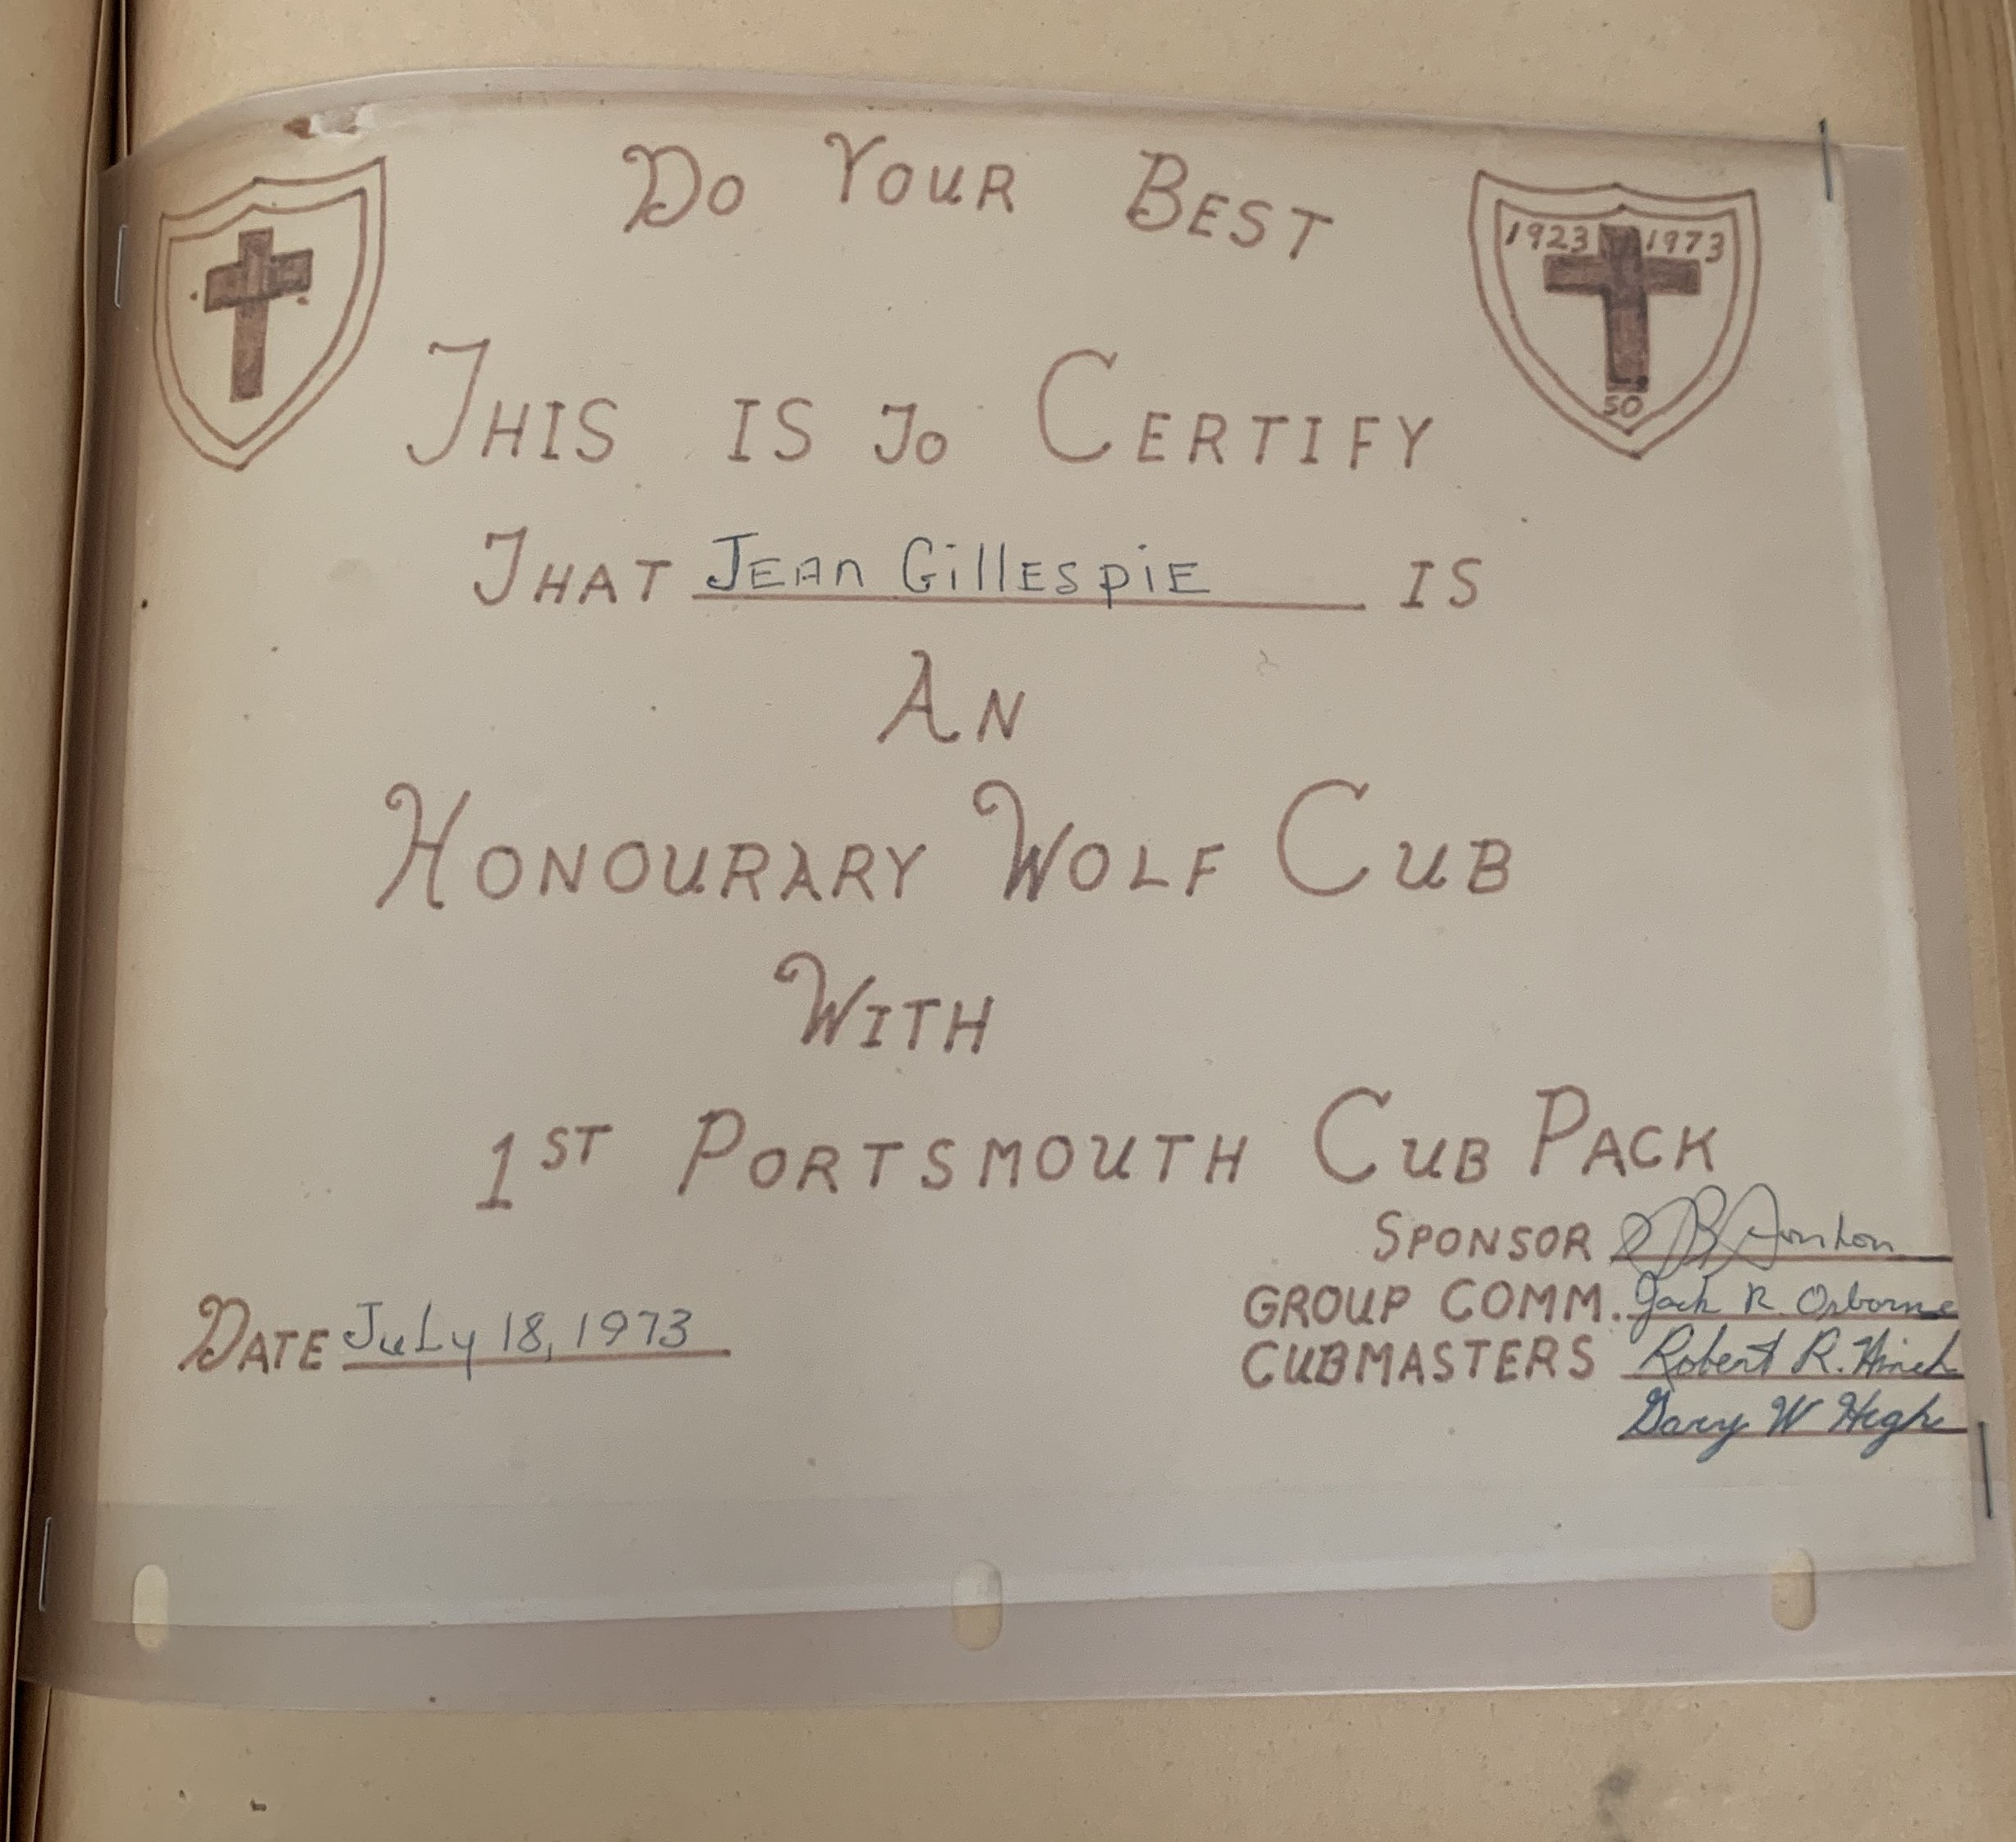 Do Your Best
1923 1973
50
This is To Certify
That Jean Gillespie is
An
Honourary Wolf Cub
With
1st Portsmouth Cub Pack
Sponsor
Group Comm. Jack R. Osborne
Cubmasters Robert R. Hinch
Gary W
Date July 18, 1973